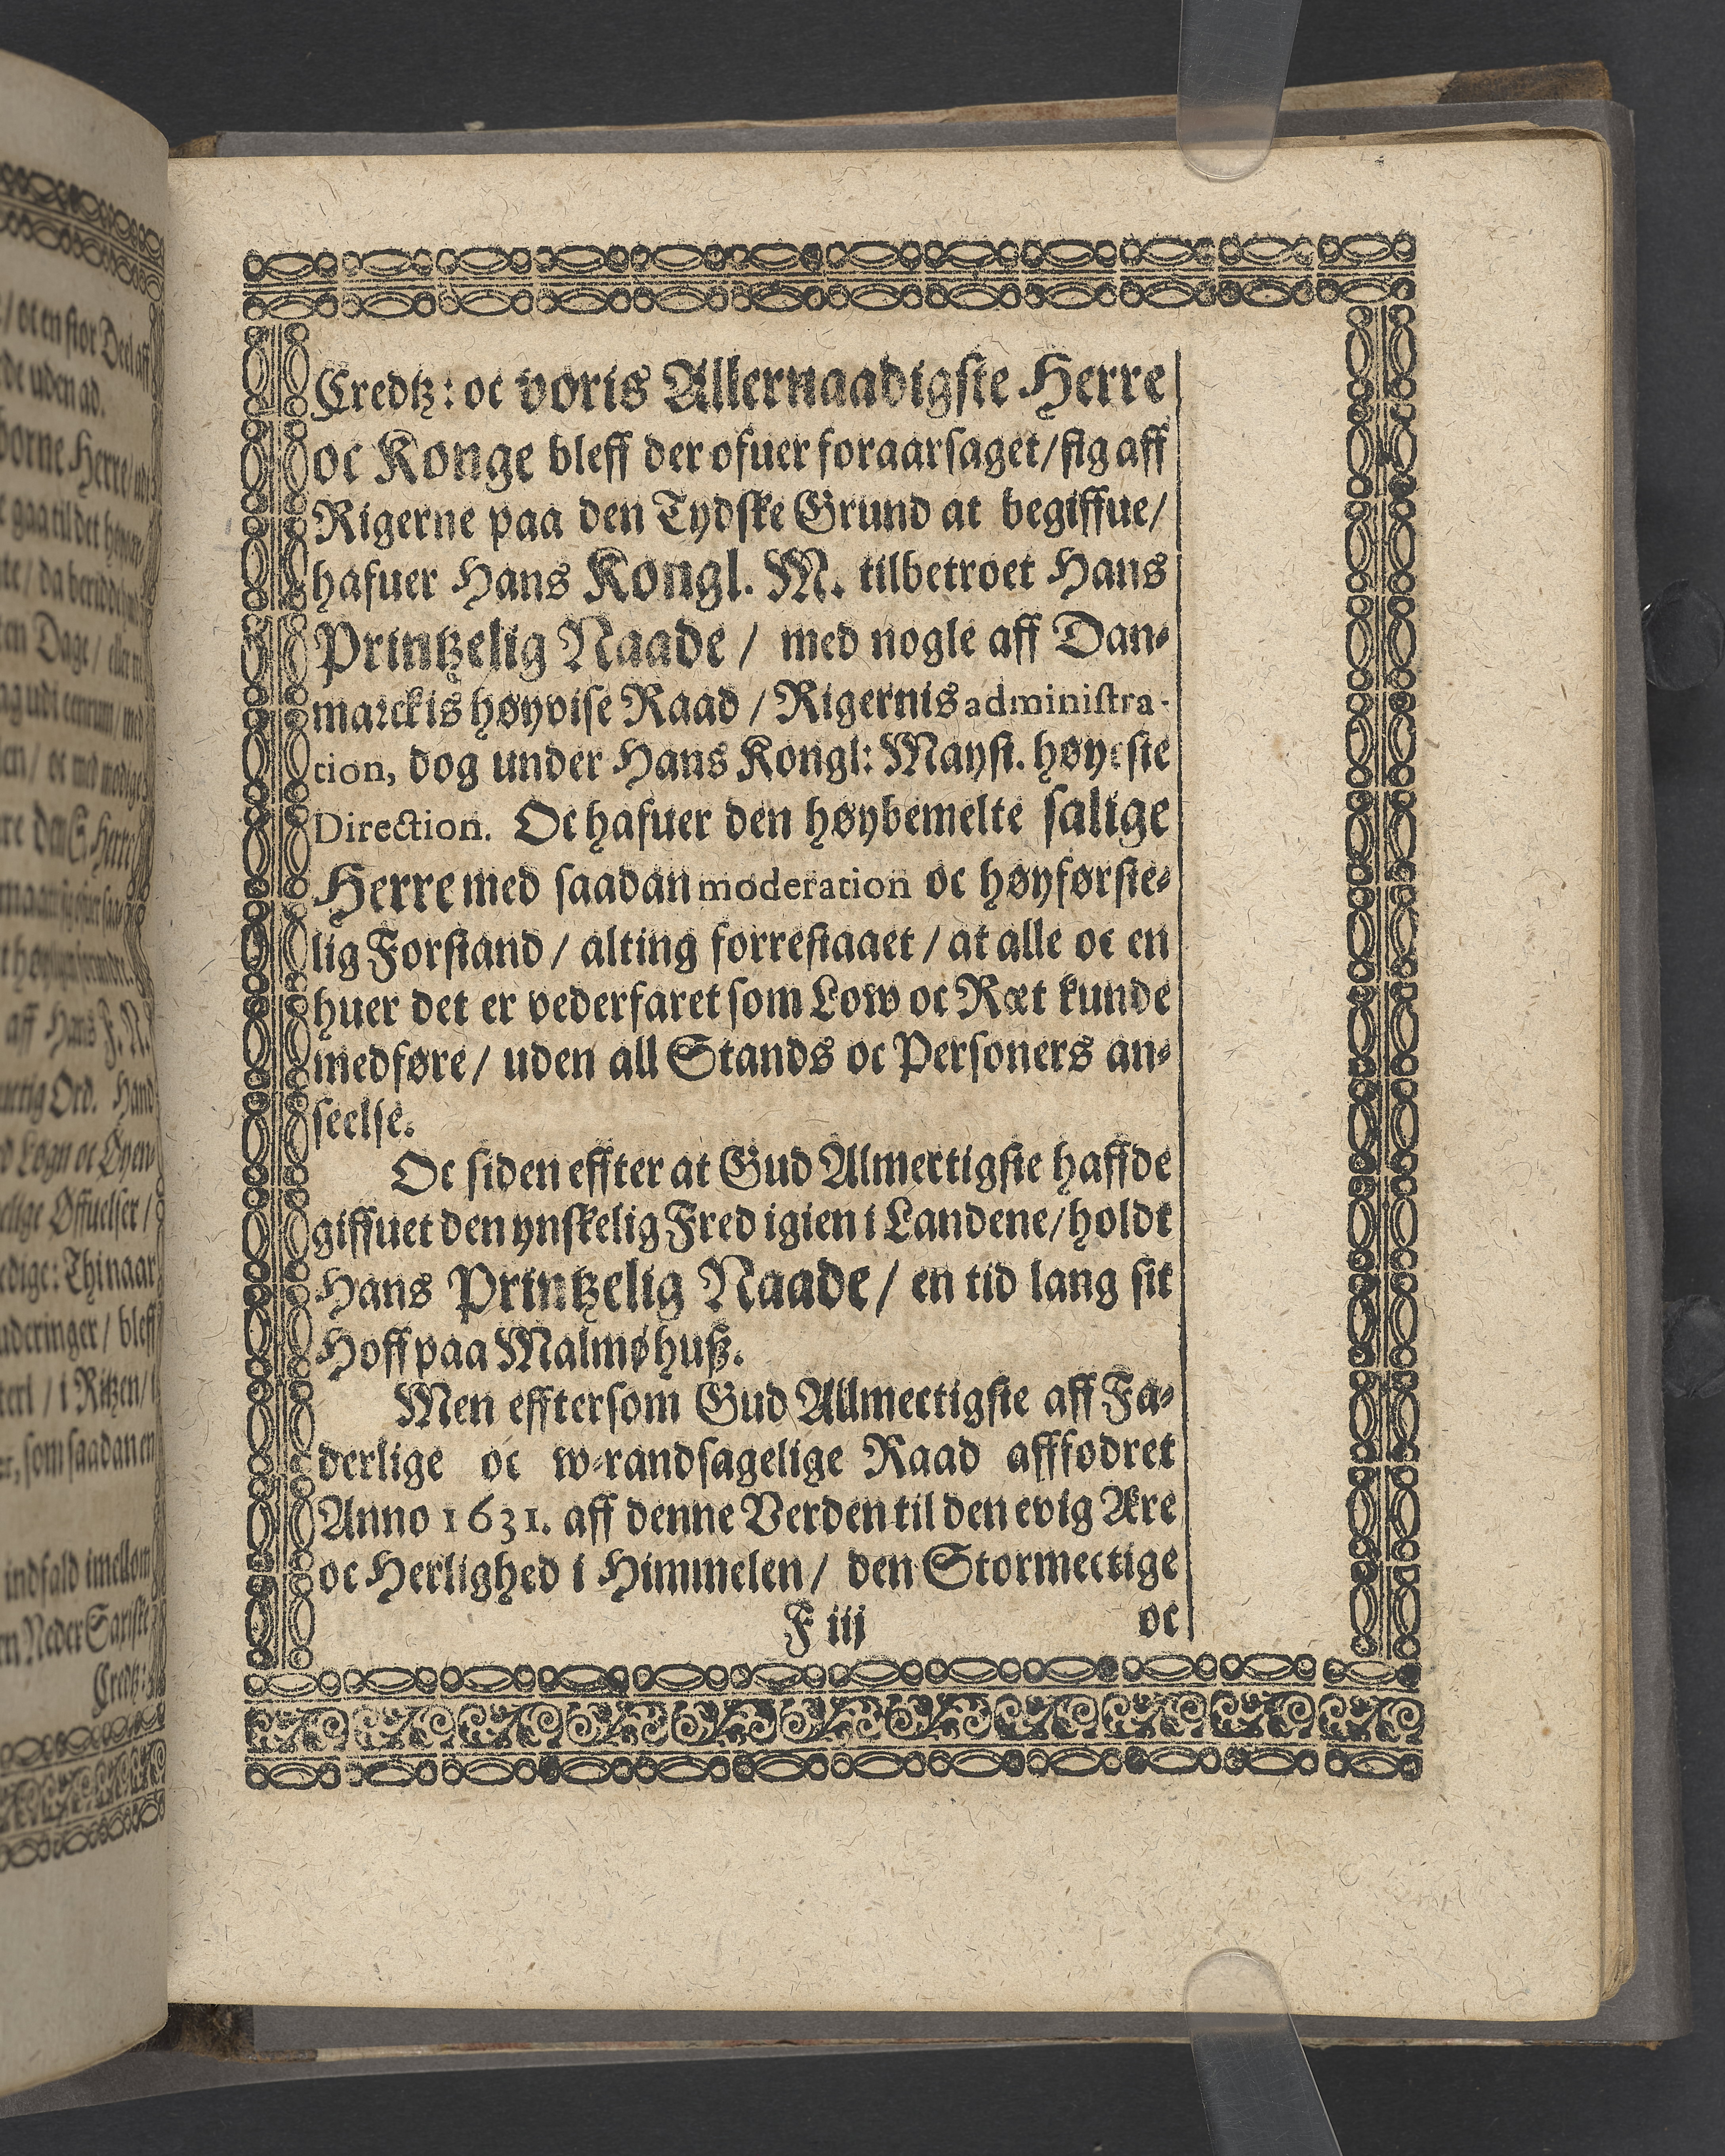 Credtz: oc voris Allernaadigste Herre
oc Konge bleff der ofuer foraarsaget/sig aff
Rigerne paa den Tydske Grund at begiffue/
hafuer Hans Kongl. M. tilbetroet Hans
Printzelig Naade / med nogle aff Dan-
marckis høyvise Raad / Rigernis administra-
tion, dog under Hans Kongl: Mayst. høyeste
Direction. Oc hafuer den høybemelte salige
Herre med saadan moderation oc høyførste-
lig Forstand / alting forrestaaet / at alle oc en
huer det er vederfaret som Low oc Ræt kunde
medføre / uden all Stands oc Personers an-
seelse.
Oc siden effter at Gud Almectigste haffde
giffuet den ynskelig Fred igien i Landene/holdt
Hans Printzelig Naade / en tid lang sit
Hoff paa Malmøhuß.
Men efftersom Gud Allmectigste aff Fa-
derlige oc w-randsagelige Raad affødret
Anno 1631. aff denne Verden til den evig Ære
oc Herlighed i Himmelen / den Stormectige
F iij oc
/ oc en stor Deel aff
de uden ad.
borne Herre/
gaa til det
en Dage /
aff Hans F. N.
Ord. Hand
Løgn oc Øyen-
Øffuelser /
Thi naar
bleff
/ i Ritzen/
som saadan en
indfald imellom
Neder Saxiske
Credtz: